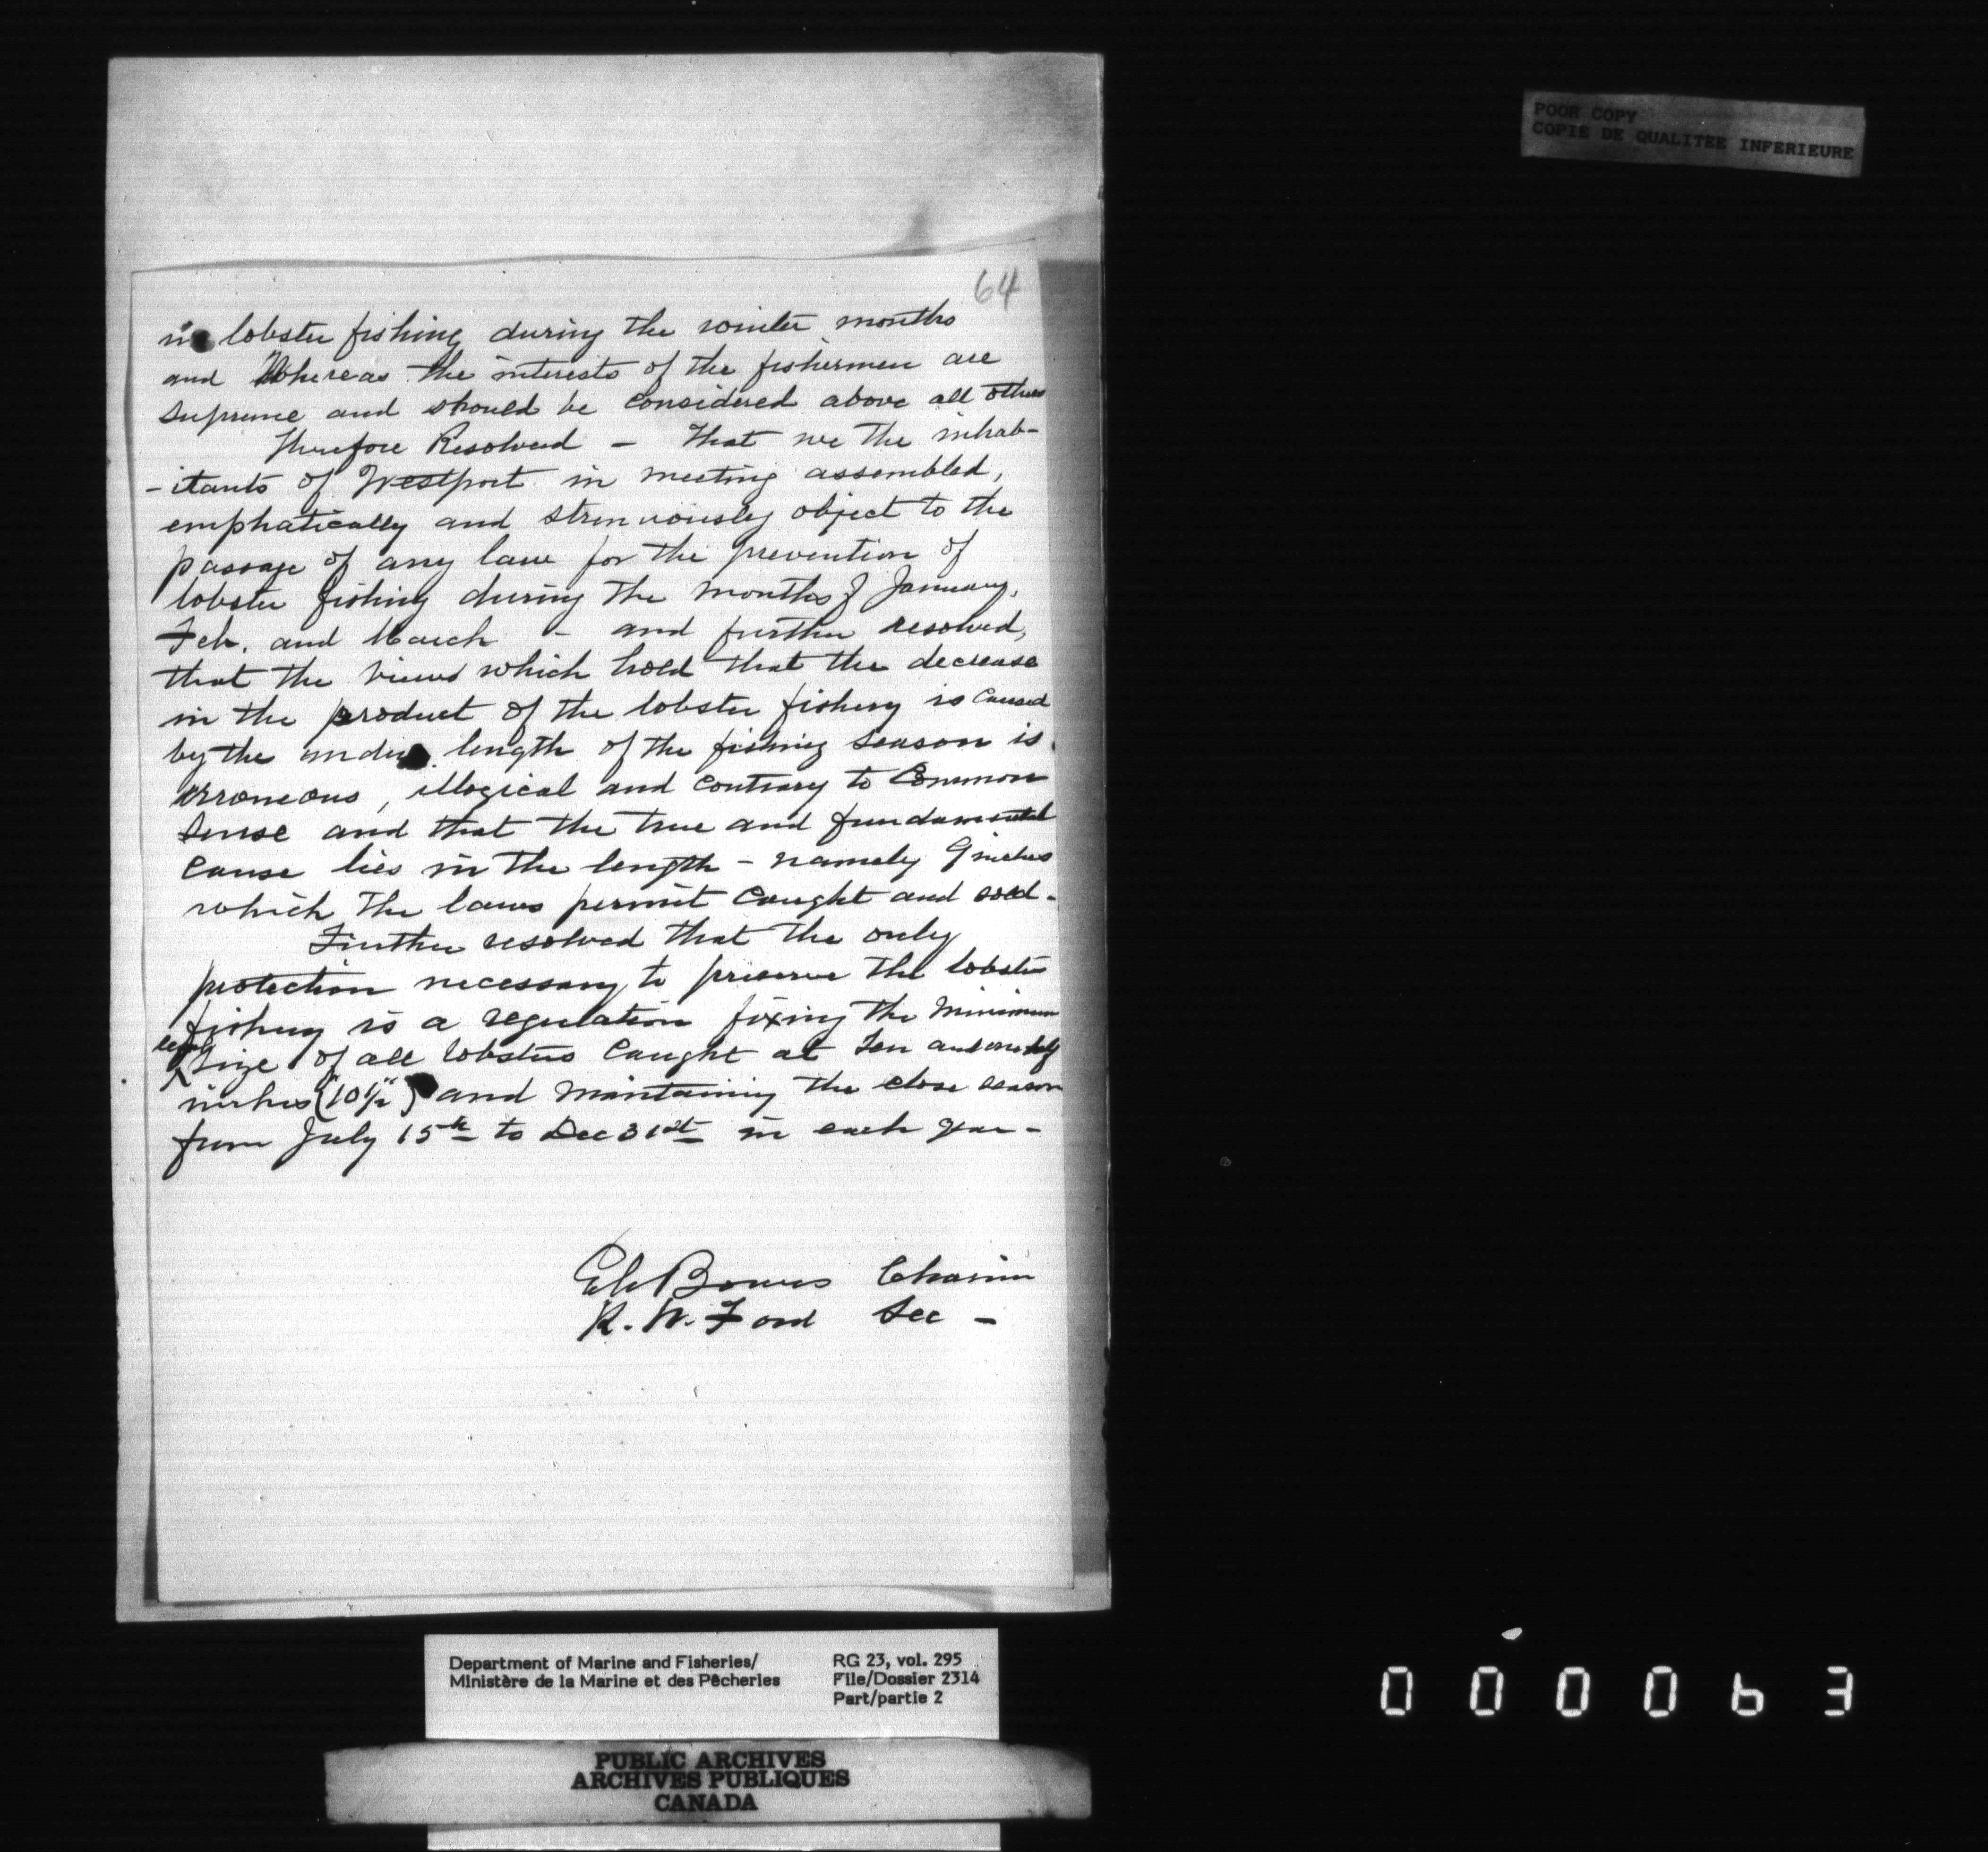 64
in lobster fishing during the winter months
and Whereas the interests of the fishermen are
supreme and should be considered above all others
Therefore Resolved - That we the inhab-
-itants of Westport in meeting assembled,
emphatically and strenuously object to the
passage of any law for the prevention of
lobster fishing during the months of January,
Feb. and March - and further resolved,
that the views which hold that the decrease
in the product of the lobster fishery is caused
by the undue length of the fishing season is
erroneous, illogical and contrary to Common
Sense and that the true and fundamental
cause lies in the length - namely 9 inches
which the laws permit caught and sold -
Further resolved that the only
protection necessary to preserve the lobster
fishery is a regulation fixing the minimum
legal
size of all lobsters caught at Ten and one half
inches (10½") and maintaining the close season
from July 15th to Dec 31st in each year -
Bowers Chairm
R. W. Ford Sec -
POOR COPY
COPIE DE QUALITEE INFERIEURE
Department of Marine and Fisheries/
Ministère de la Marine et des Pêcheries
RG 23, vol. 295
File/Dossier 2314
Part/partie 2
PUBLIC ARCHIVES
ARCHIVES PUBLIQUES
CANADA
000063